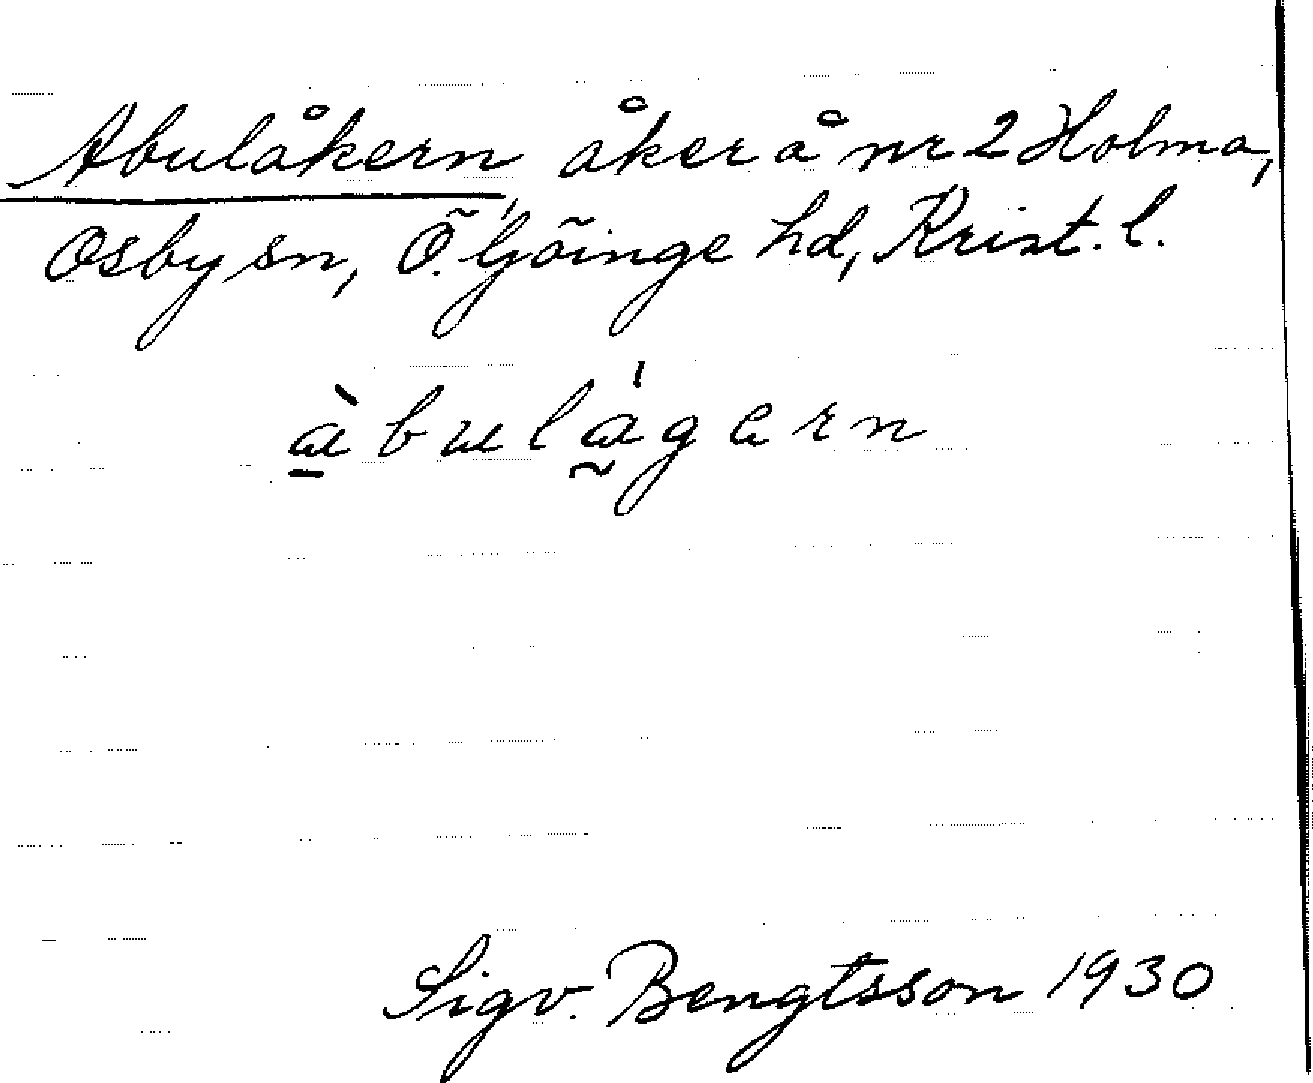 Abulåkern, åker å nr 2 Holma,
Osby sn, Ö. Göinge hd, Krist. l.
àbulágern
Sigv. Bengtsson 1930